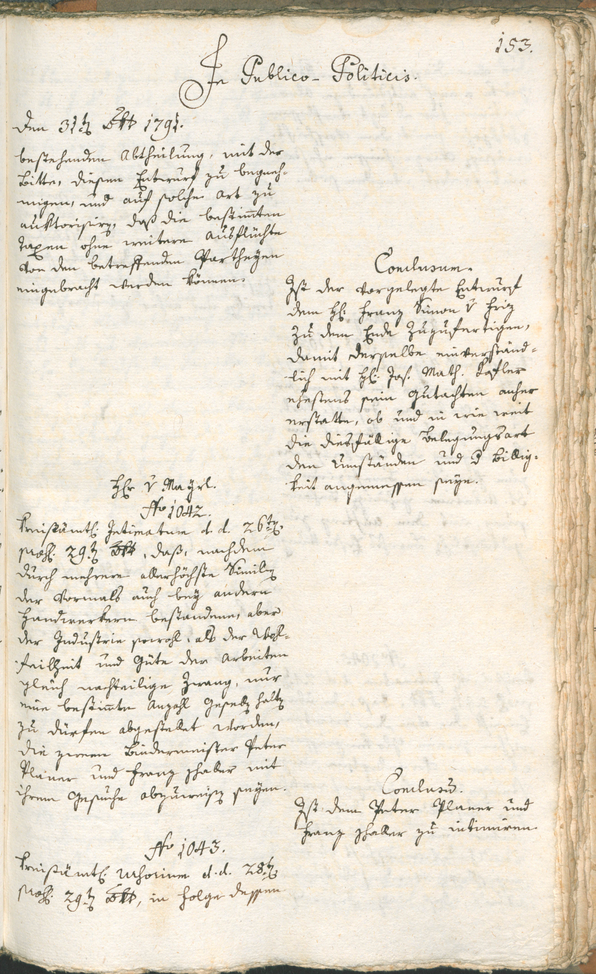 153.
In Publico-Politicis.
den 31t 8br 1791.
bestehenden Abtheilung, mit der
Bitte, diesen Entwurf zu begneh-
migen, und auf solche Art zu
auktorisirn, daß die bestimmten
Taxen ohne weitere Ausflüchte
von den betreffenden Partheyen
eingebracht werden können.
Conclusum.
Ist der vorgelegte Entwurf
dem H: Franz Simon v
zu dem Ende zuzufertigen,
damit derselbe einverständ-
lich mit H: Jos. Math.
ehestens sein Gutachten anher
erstatte, ob und in wie weit
die diesfällige Belegungsart
den Umständen und d Billig-
keit angemessen seye.
Hr v Mayrl.
No 1042.
Kreisämtl. Intimatum d. d. 26t,
29t 8br, daß, nachdem
durch mehrere allerhöchste
der vormals auch bey andern
Handwerkern bestandene, aber
der Industrie sowohl, als der Wohl-
feilheit und Güte der Arbeiten
gleich nachteilige Zwang, nur
eine bestimmte Anzahl Gesellen halten
zu dürfen abgestellet worden,
die zween Bindermeister Peter
Planer und Franz
ihrem Gesuche abzuweisen seyen.
Conclusum.
Ist dem Peter Planer und
Franz zu intimiren.
No 1043.
Kreisämtl. d. d. 28t
29t 8br, in Folge dessen